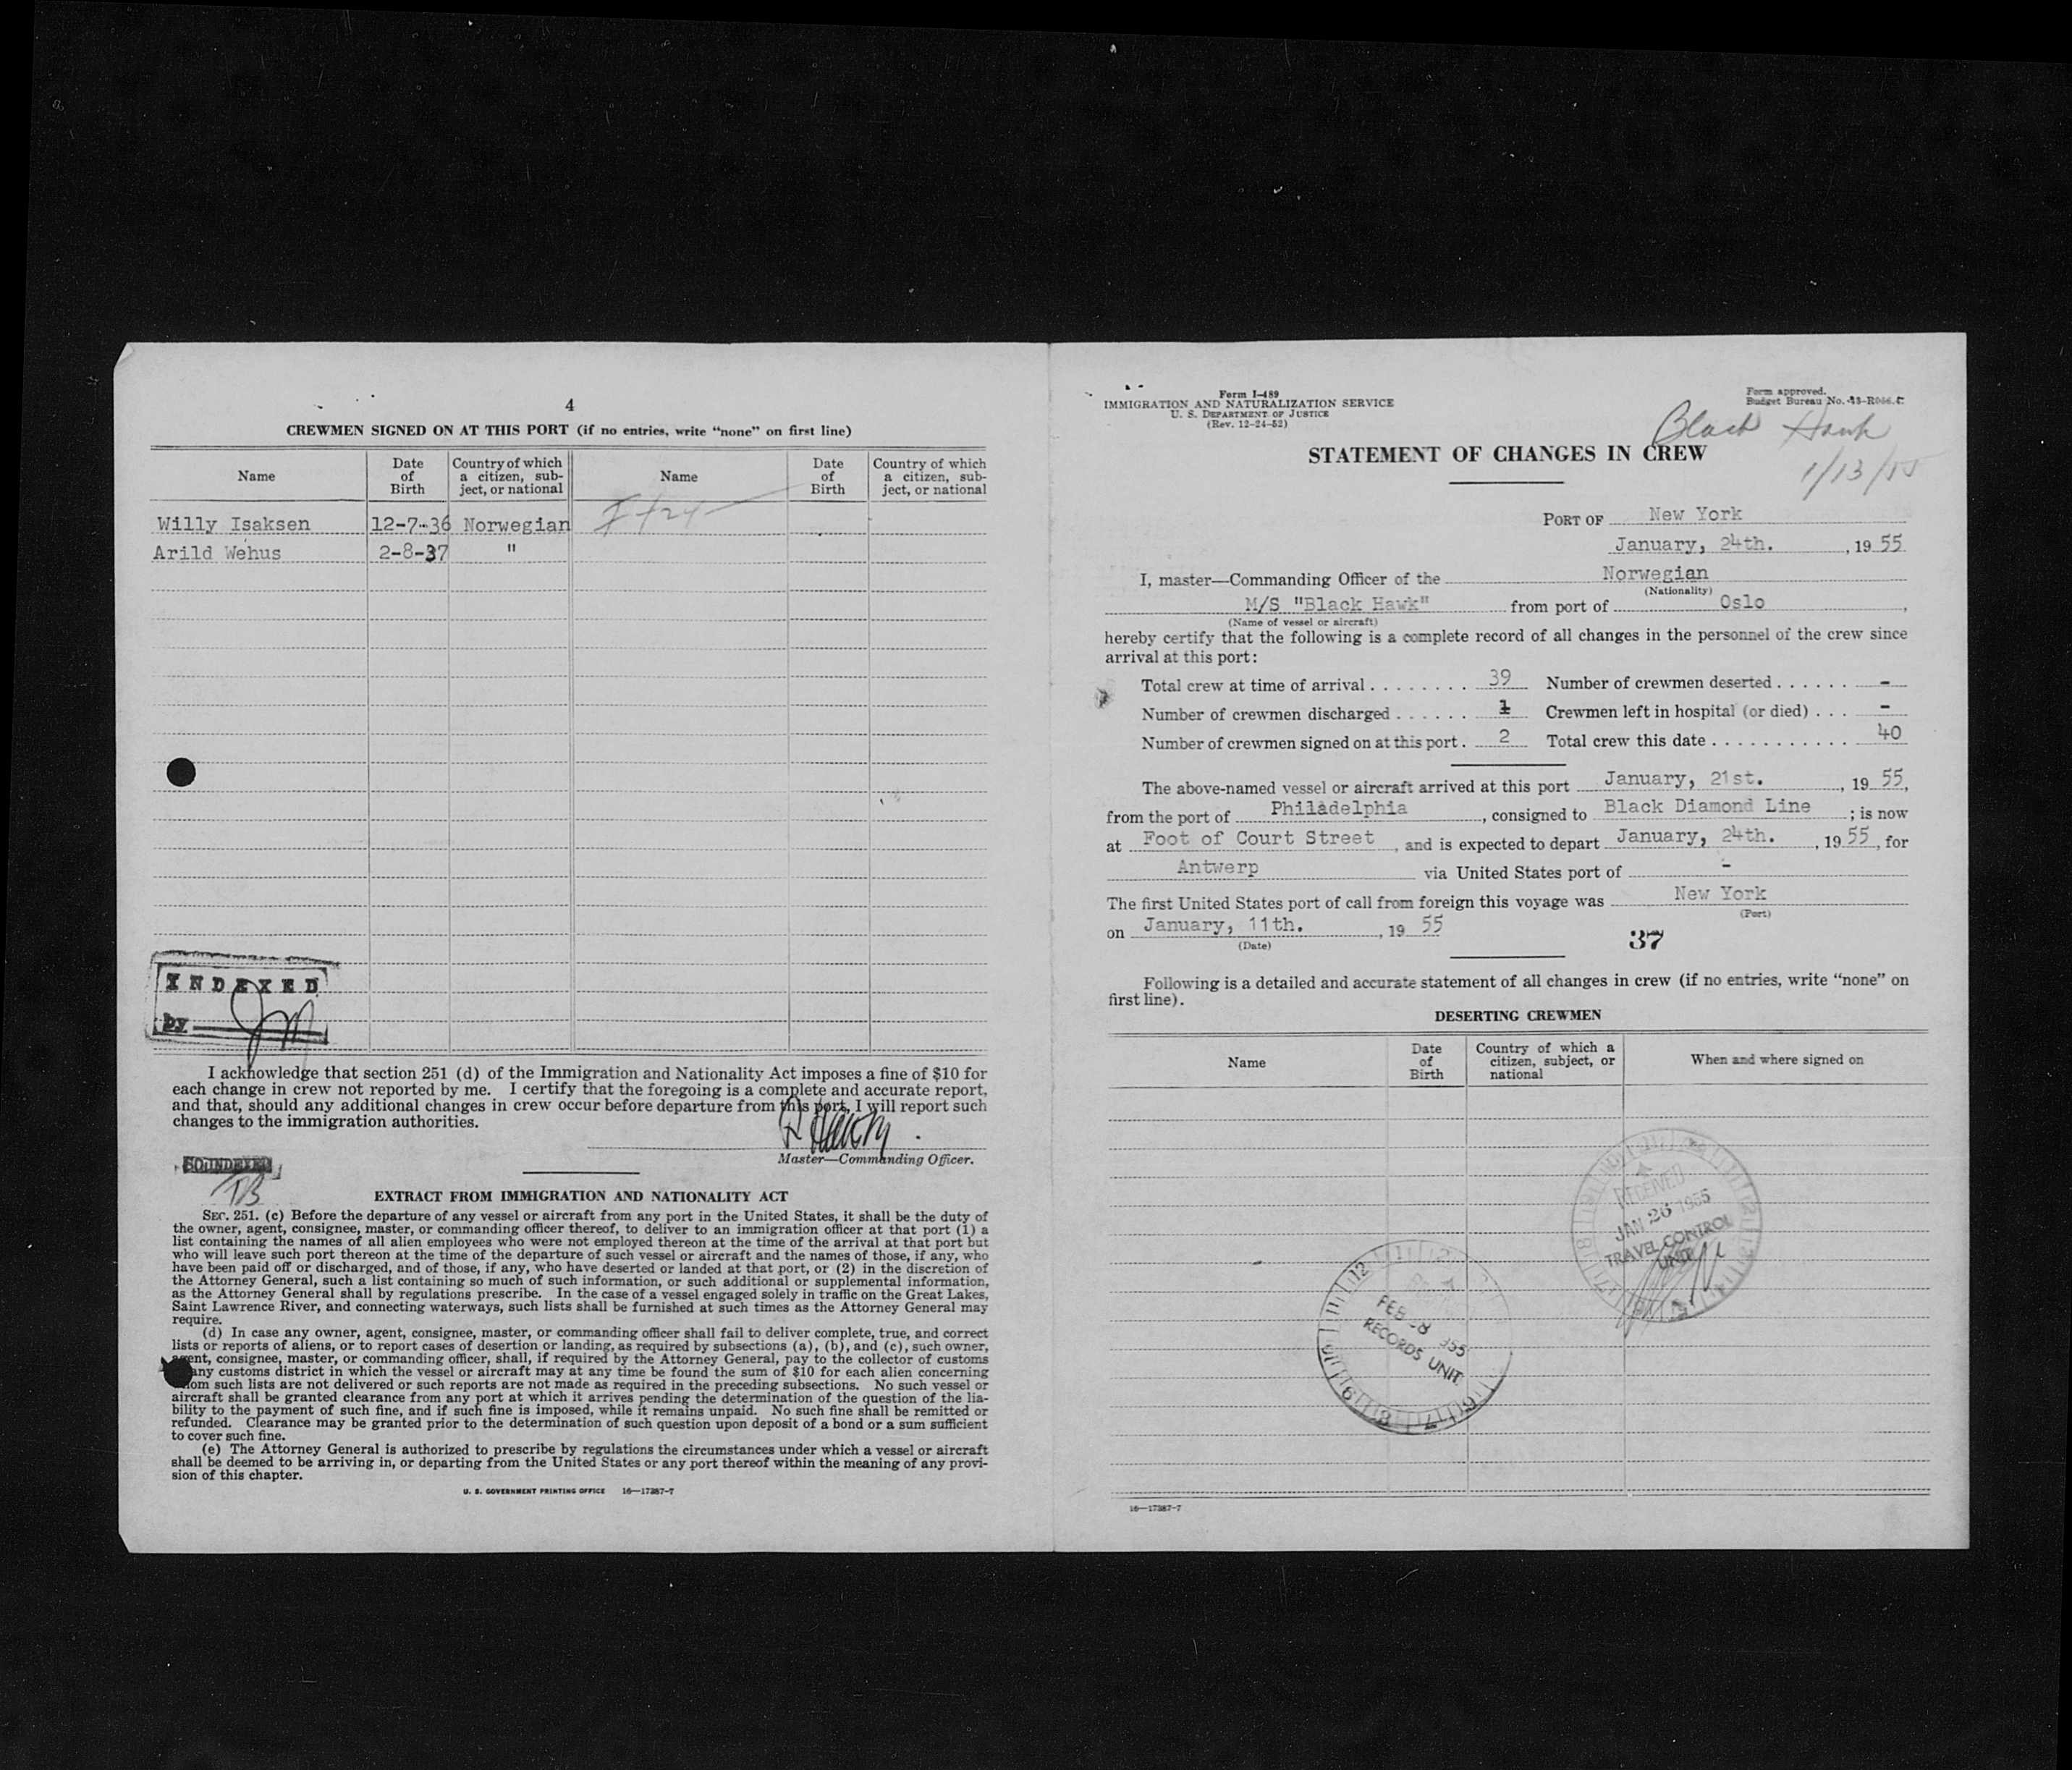 4
CREWMEN SIGNED ON AT THIS PORT (if no entries, write "none" on first line)
Name Date of Birth Country of which a citizen, sub-ject, or national Name Date of Birth Country of which a citizen, sub-ject, or national
Willy Isaksen 12-7-36 Norwegian
Arild Wehus 2-8-37 "
INDEXED
by
I acknowledge that section 251 (d) of the Immigration and Nationality Act imposes a fine of $10 for
each change in crew not reported by me. I certify that the foregoing is a complete and accurate report,
and that, should any additional changes in crew occur before departure from this port, I will report such
changes to the immigration authorities.
Master—Commanding Officer.
SOUNDEXED
TB
EXTRACT FROM IMMIGRATION AND NATIONALITY ACT
SEC. 251. (c) Before the departure of any vessel or aircraft from any port in the United States, it shall be the duty of
the owner, agent, consignee, master, or commanding officer thereof, to deliver to an immigration officer at that port (1) a
list containing the names of all alien employees who were not employed thereon at the time of the arrival at that port but
who will leave such port thereon at the time of the departure of such vessel or aircraft and the names of those, if any, who
have been paid off or discharged, and of those, if any, who have deserted or landed at that port, or (2) in the discretion of
the Attorney General, such a list containing so much of such information, or such additional or supplemental information,
as the Attorney General shall by regulations prescribe. In the case of a vessel engaged solely in traffic on the Great Lakes,
Saint Lawrence River, and connecting waterways, such lists shall be furnished at such times as the Attorney General may
require.
(d) In case any owner, agent, consignee, master, or commanding officer shall fail to deliver complete, true, and correct
lists or reports of aliens, or to report cases of desertion or landing, as required by subsections (a), (b), and (c), such owner,
agent, consignee, master, or commanding officer, shall, if required by the Attorney General, pay to the collector of customs
any customs district in which the vessel or aircraft may at any time be found the sum of $10 for each alien concerning
whom such lists are not delivered or such reports are not made as required in the preceding subsections. No such vessel or
aircraft shall be granted clearance from any port at which it arrives pending the determination of the question of the lia-
bility to the payment of such fine, and if such fine is imposed, while it remains unpaid. No such fine shall be remitted or
refunded. Clearance may be granted prior to the determination of such question upon deposit of a bond or a sum sufficient
to cover such fine.
(e) The Attorney General is authorized to prescribe by regulations the circumstances under which a vessel or aircraft
shall be deemed to be arriving in, or departing from the United States or any port thereof within the meaning of any provi-
sion of this chapter.
U. S. GOVERNMENT PRINTING OFFICE 16—17387-7
Form I-489
IMMIGRATION AND NATURALIZATION SERVICE
U. S. DEPARTMENT OF JUSTICE
(Rev. 12-24-52)
Form approved.
Budget Bureau No.
Black Hawk
1/13/55
STATEMENT OF CHANGES IN CREW
PORT OF New York
January, 24th. , 19 55
I, master—Commanding Officer of the Norwegian
(Nationality)
M/S "Black Hawk" from port of Oslo ,
(Name of vessel or aircraft)
hereby certify that the following is a complete record of all changes in the personnel of the crew since
arrival at this port:
Total crew at time of arrival . . . . . . . . 39 Number of crewmen deserted . . . . . . -
Number of crewmen discharged . . . . . . 1 Crewmen left in hospital (or died) . . . -
Number of crewmen signed on at this port . 2 Total crew this date . . . . . . . . . . . 40
The above-named vessel or aircraft arrived at this port January, 21st. , 19 55,
from the port of Philadelphia , consigned to Black Diamond Line ; is now
at Foot of Court Street , and is expected to depart January, 24th. , 19 55 , for
Antwerp via United States port of -
The first United States port of call from foreign this voyage was New York
(Port)
on January, 11th. , 19 55
(Date)
37
Following is a detailed and accurate statement of all changes in crew (if no entries, write "none" on
first line).
DESERTING CREWMEN
Name Date of Birth Country of which a citizen, subject, or national When and where signed on
RECEIVED
JAN 26 1955
TRAVEL CONTROL
UNIT
FEB 8 1955
RECORDS UNIT
16—17387-7